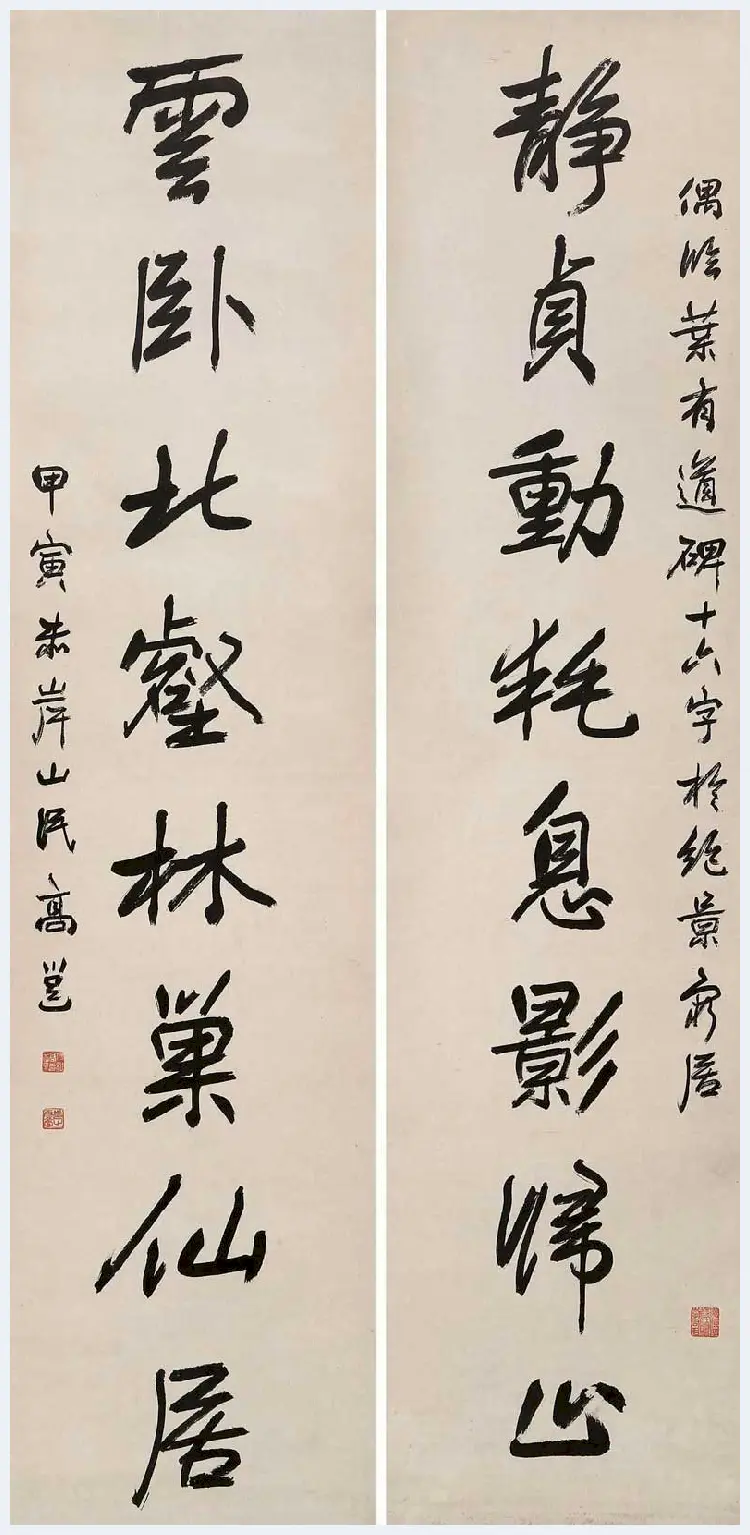 偶臨葉有道碑十六字於絕景窮居
靜貞動耗息影歸山
雲臥北壑林巢仙居
甲寅赤岸山民高邕